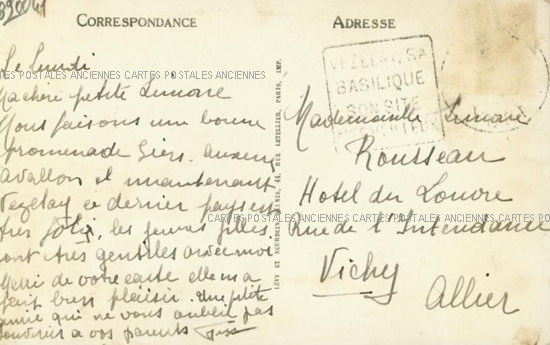 CORRESPONDANCE
Le Lundi
Ma chère petite Simone
Nous faisons une bonne
promenade Giers. Auxerre
Avallon et maintenant
Vezelay ce dernier pays est
très joli, les jeunes filles
sont très gentilles avec moi
Merci de votre carte elle m'a
fait bien plaisir. Une petite
amie qui ne vous oublie pas
souvenir à vos parents
LÉVY ET NEURDEIN RÉUNIS, 44, RUE LETELLIER, PARIS, IMP.
ADRESSE
VEZELAY, SA
BASILIQUE
SON SITE
Mademoiselle Simone
Rousseau
Hotel du Louvre
Rue de l'Intendance
Vichy
Allier
CARTES POSTALES ANCIENNES CARTES POSTALES ANCIENNES
CARTES POSTALES ANCIENNES CARTES POSTALES ANCIENNES